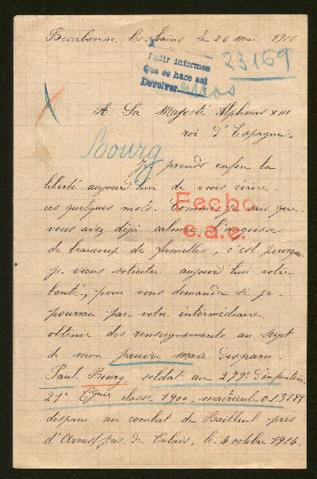 Bourbonne les bains le 26 mai 1916
Pedir informes
Que se hace asi
Devolver
23169
A Sa Majesté Alphonse XIII
roi d'Espagne.
Bourg
Je prends enfin la
liberté aujourd'hui de vous écrire
ces quelques mots. Comme je sais que
vous avez déjà calmé l'angoisse
de beaucoup de familles, c'est pourquoi
je viens solliciter aujourd'hui votre
bonté, pour vous demander si je
pourrais par votre intermédiaire
obtenir des renseignements au sujet
de mon pauvre mari disparu
Fecho
e.a.e.
Paul Bourg soldat au 279e d'infanterie
21e Cgnie classe 1900, matricule 013788
disparu au combat du Bailleul près
d'Arras pas de Calais, le 4 octobre 1914.